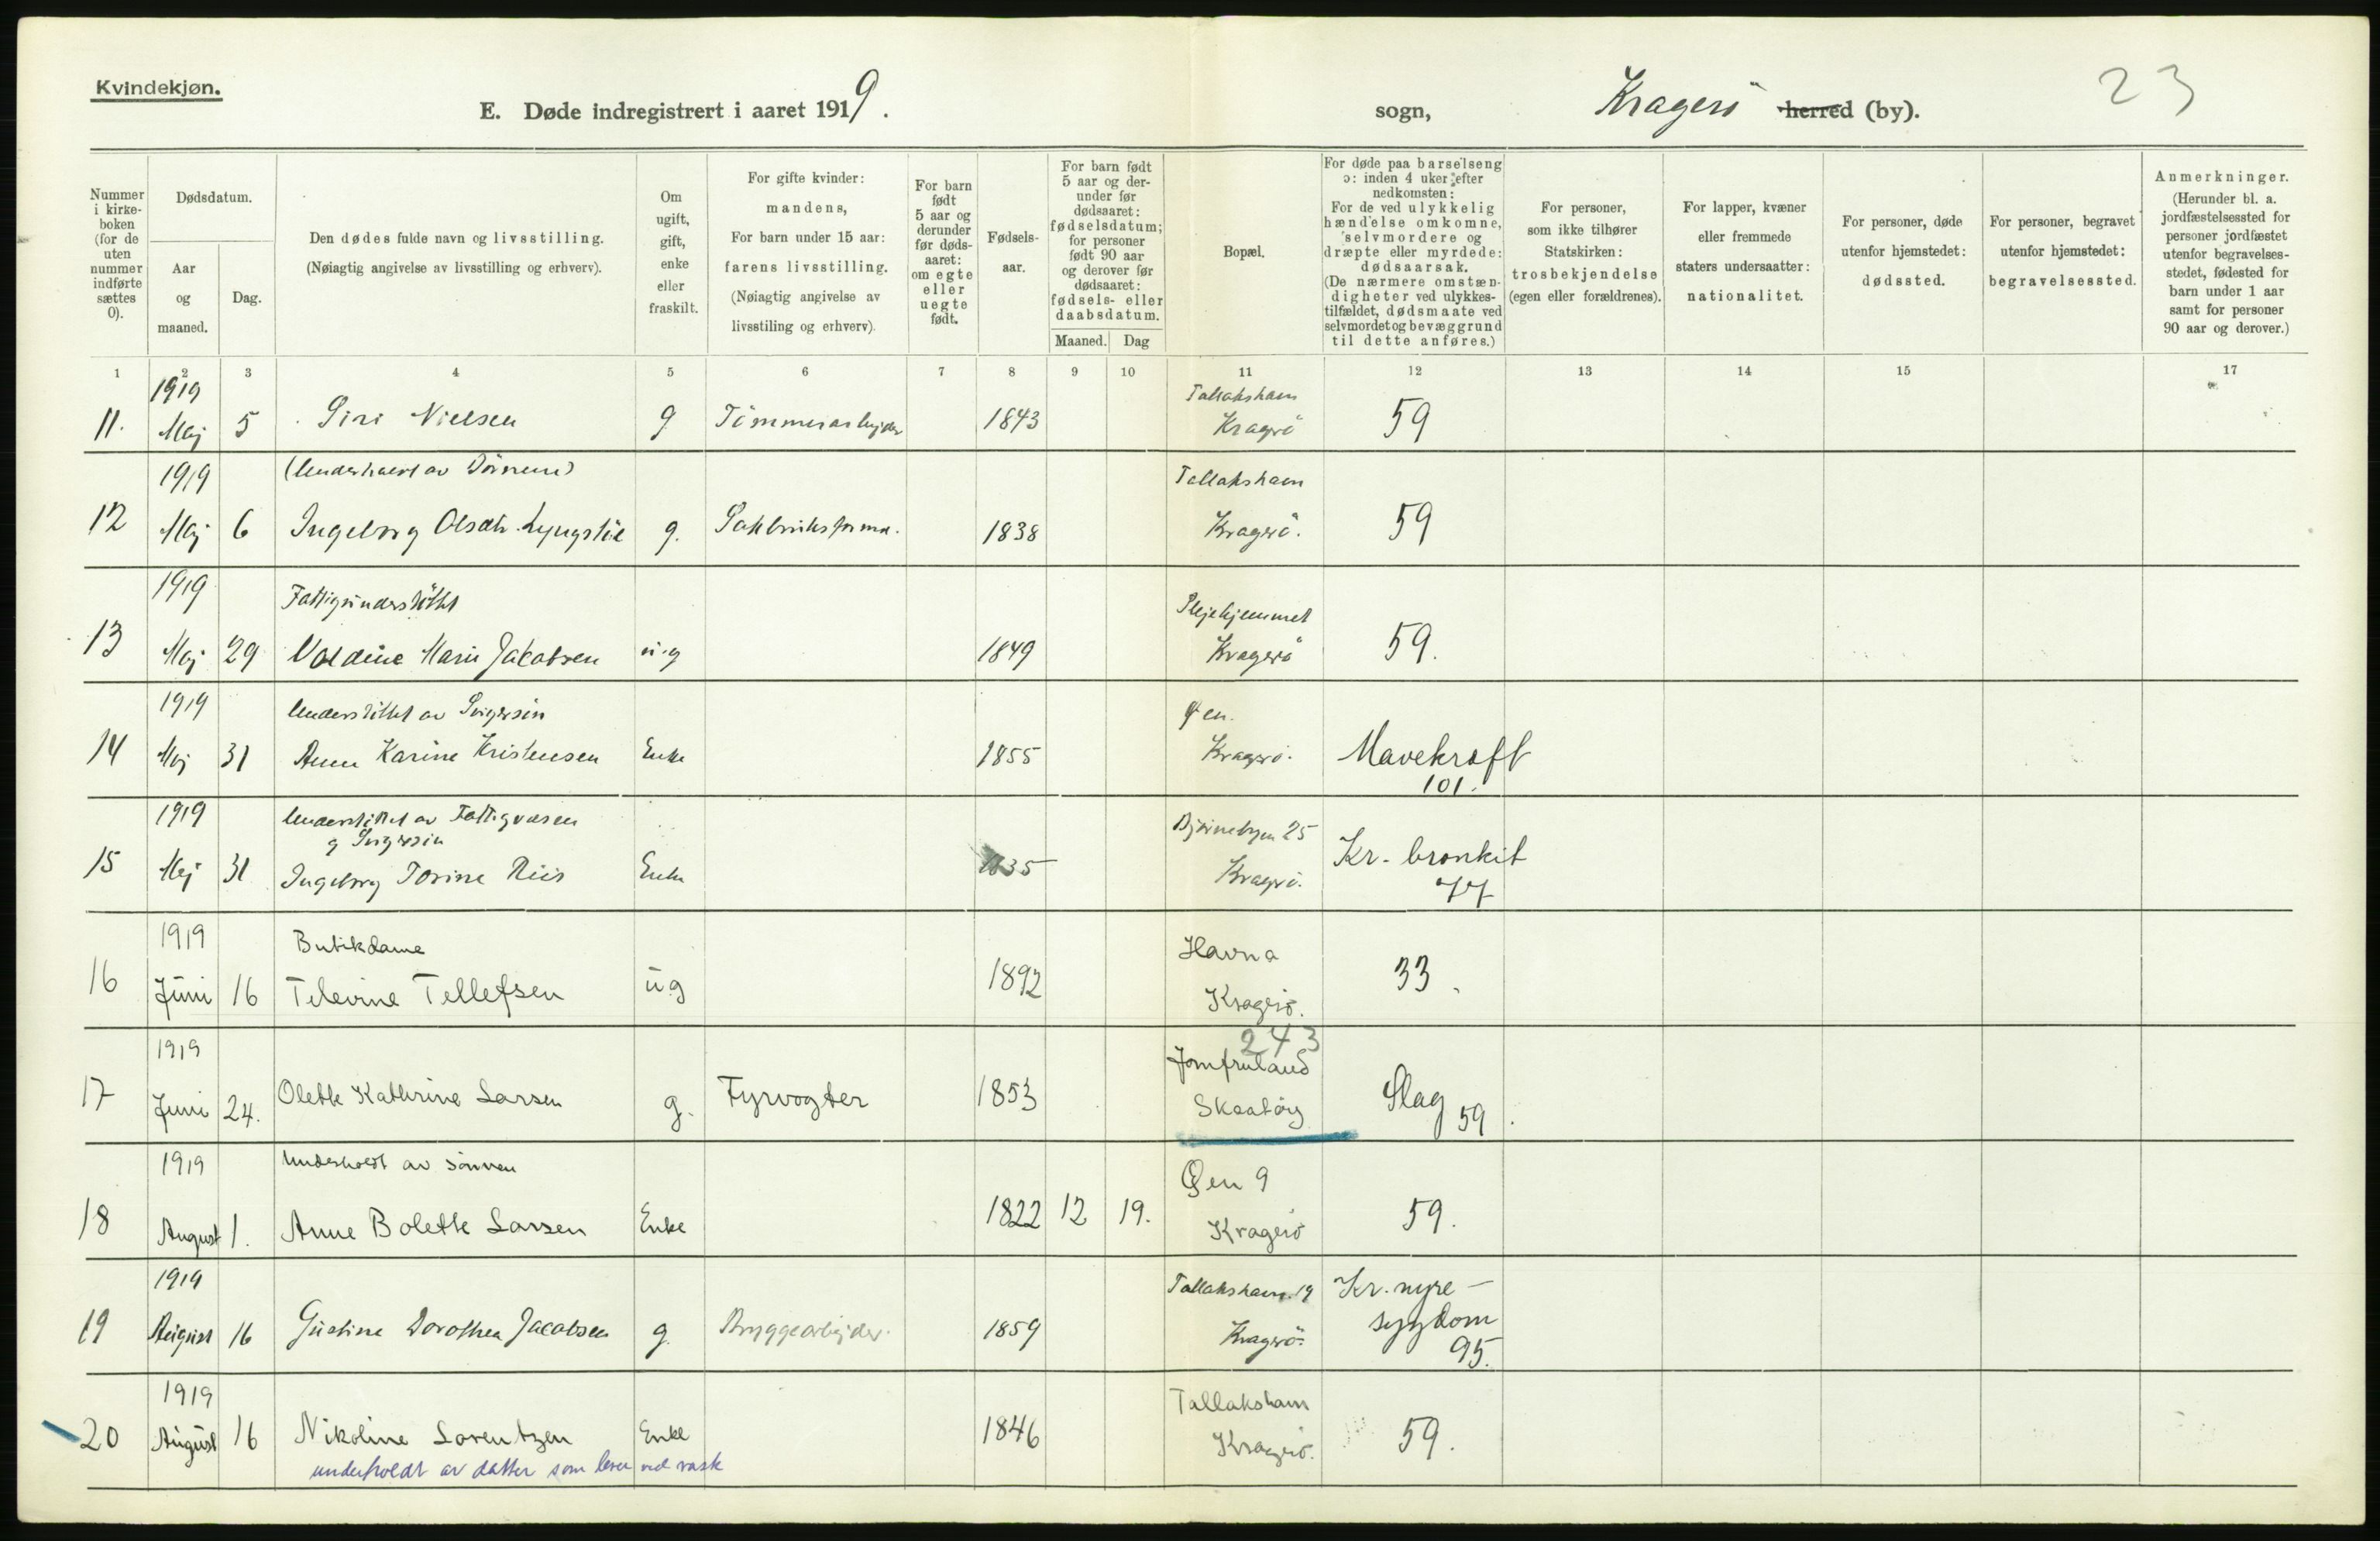 Kvindekjøn.
E. Døde indregistrert i aaret 1919.
sogn, Kragerö herred (by).
23
Nummer i kirke-boken (for de uten nummer indførte sættes 0).
Dødsdatum.
Aar og maaned.
Dag.
Den dødes fulde navn og livsstilling.
(Nøiagtig angivelse av livsstilling og erhverv).
Om ugift, gift, enke eller fraskilt.
For gifte kvinder: mandens,
For barn under 15 aar: farens livsstilling.
(Nøiagtig angivelse av livsstiling og erhverv).
For barn født 5 aar og derunder før døds-aaret: om egte eller uegte født.
Fødsels-aar.
For barn født 5 aar og der-under før dødsaaret: fødselsdatum; for personer født 90 aar og derover før dødsaaret: fødsels- eller daabsdatum.
Maaned. Dag
Bopæl.
For døde paa barselseng ɔ: inden 4 uker efter nedkomsten:
For de ved ulykkelig hændelse omkomne, selvmordere og dræpte eller myrdede: dødsaarsak.
(De nærmere omstæn-digheter ved ulykkes-tilfældet, dødsmaate ved selvmordet og bevæggrund til dette anføres.)
For personer, som ikke tilhører Statskirken: trosbekjendelse (egen eller forældrenes).
For lapper, kvæner eller fremmede staters undersaatter: nationalitet.
For personer, døde utenfor hjemstedet: dødssted.
For personer, begravet utenfor hjemstedet: begravelsessted.
Anmerkninger.
(Herunder bl. a. jordfæstelsessted for personer jordfæstet utenfor begravelses-stedet, fødested for barn under 1 aar samt for personer 90 aar og derover.)
1 2 3 4 5 6 7 8 9 10 11 12 13 14 15 17
1919 Tallakshavn
11. Maj 5 Siri Nielsen g Tömmerarbejder 1843 Kragerö 59
1919 (Underholdt av Sönnene) Tallakshavn
12 Maj 6 Ingeborg Olsdtr. g. 1838 Kragerö. 59
1919 Fattigunderstöttet Plejehjemmet
13 Maj 29 Valdine Marie Jacobsen u.g 1849 Kragerö 59.
1919 Understöttet av Øen.
14 Maj 31 Anne Karine Kristensen Enke 1855 Kragerö. Mavekræft
101.
1919 Understöttet av Fattigvæsen Björnebyen 25
15 Maj 31 Ingeborg Torine Riis Enke 1835 Kragerö. Kr. bronkit
77
1919 Butikdame Havna
16 Juni 16 Televine Tellefsen ug 1892 Kragerö. 33.
1919 243 Jomfruland
17 Juni 24. Olette Kathrine Larsen g. Fyrvogter 1853 Skaatöy Slag 59.
1919 Underholdt av sönnen Øen 9
18 August 1. Anne Bolette Larsen Enke 1822 12 19. Kragerö 59.
1919 Tallakshavn. 19 Kr. nyre-
19 August 16 Gustine Dorothea Jacobsen g. Bryggearbejder. 1859 Kragerö. sygdom
95.
1919 Tallakshavn
20 August 16 Nikoline Lorentzen Enke 1846 Kragerö. 59.
underholdt av datter som lever ved vask